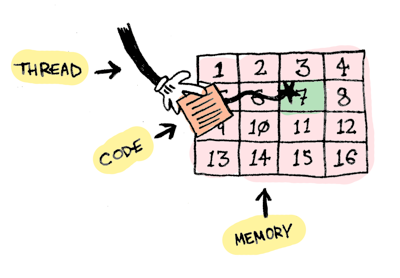 THREAD
CODE
1 2 3 4
6 7 8
9 10 11 12
13 14 15 16
MEMORY